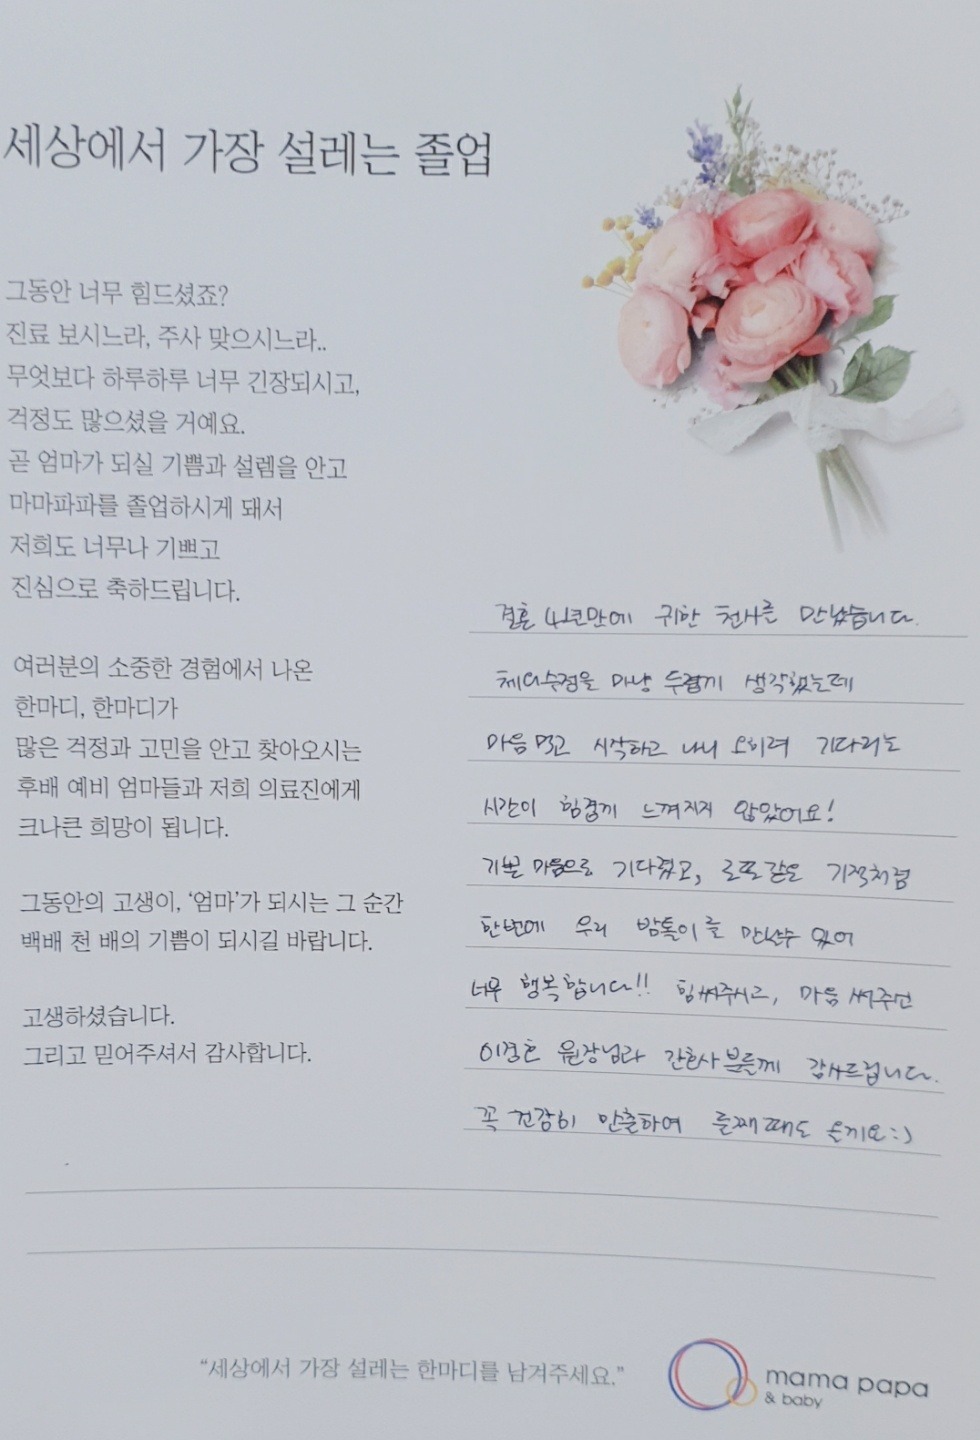 세상에서 가장 설레는 졸업
그동안 너무 힘드셨죠?
진료 보시느라, 주사 맞으시느라..
무엇보다 하루하루 너무 긴장되시고,
걱정도 많으셨을 거예요.
곧 엄마가 되실 기쁨과 설렘을 안고
마마파파를 졸업하시게 돼서
저희도 너무나 기쁘고
진심으로 축하드립니다.
여러분의 소중한 경험에서 나온
한마디, 한마디가
많은 걱정과 고민을 안고 찾아오시는
후배 예비 엄마들과 저희 의료진에게
크나큰 희망이 됩니다.
그동안의 고생이, '엄마'가 되시는 그 순간
백배 천 배의 기쁨이 되시길 바랍니다.
고생하셨습니다.
그리고 믿어주셔서 감사합니다.
결혼 4년만에 귀한 천사를 만났습니다.
체외수정을 마냥 두렵게 생각했는데
마음 먹고 시작하고 나니 오히려 기다리는
시간이 힘겹게 느껴지지 않았어요!
기쁜 마음으로 기다렸고, 로또같은 기적처럼
한번에 우리 밤톨이를 만날수 있어
너무 행복합니다!! 힘써주시고, 마음 써주신
이경훈 원장님과 간호사분들께 감사드립니다.
꼭 건강히 출하여 둘째때도 올게요 :)
"세상에서 가장 설레는 한마디를 남겨주세요."
mama papa
& baby